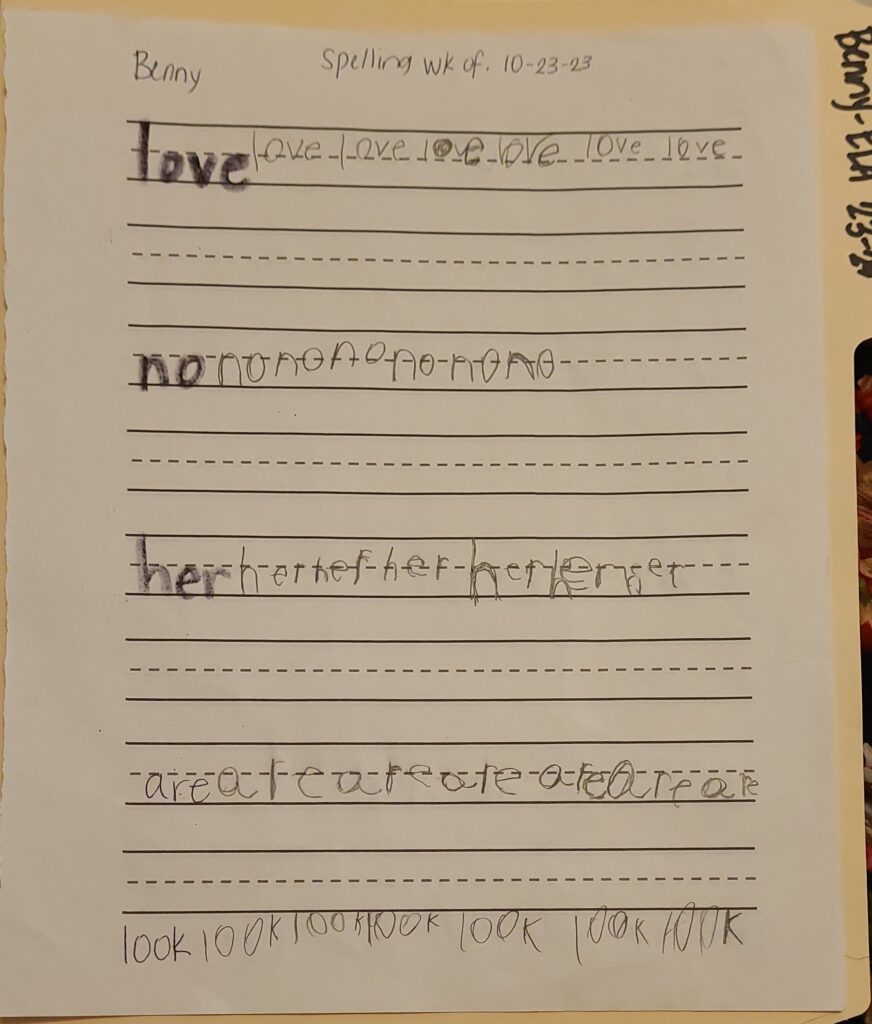 Benny Spelling wk of. 10-23-23
love love love love love love love
no no no no no no no
her her her her her her her
are are are are are are are
look look look look look look look
Benny-ELA